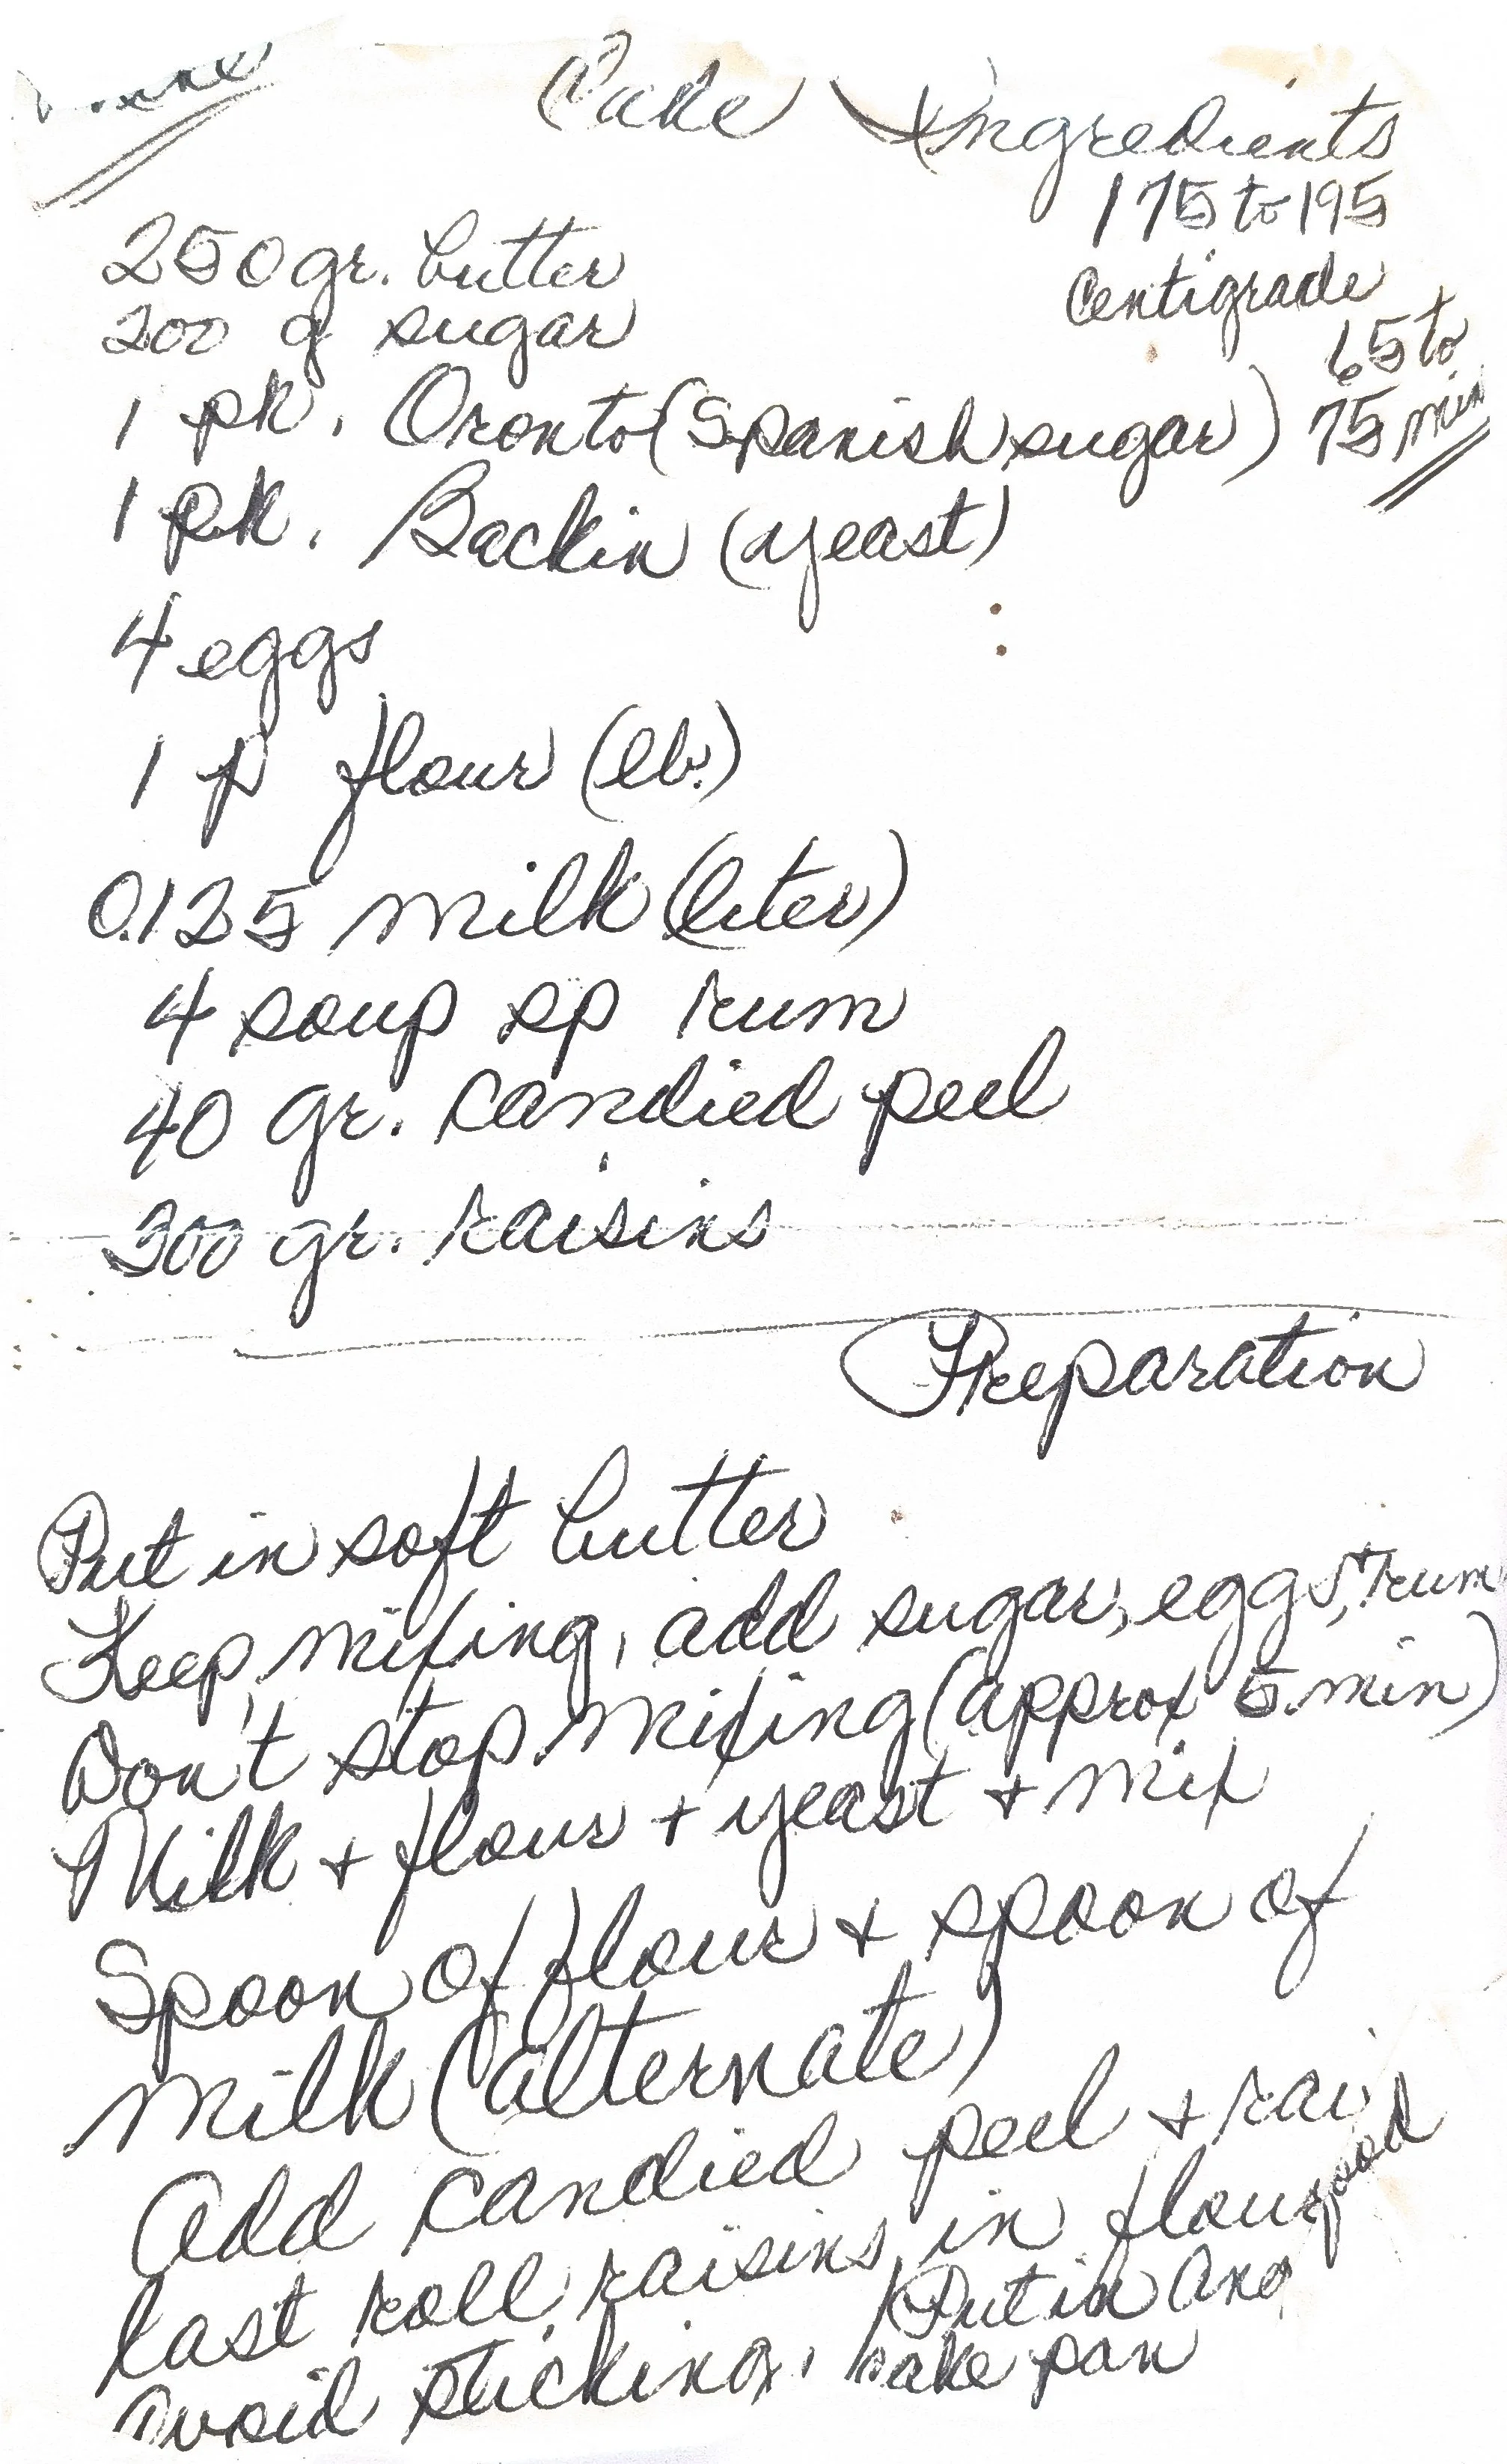 Cake Ingredients
175 to 195
Centigrade
65 to
75 min
250 gr. butter
200 g sugar
1 pk. Oronto (Spanish sugar)
1 pk. Backin (yeast)
4 eggs
1 p flour (lb.)
0.125 milk (liter)
4 soup sp rum
40 gr. candied peel
300 gr. raisins
Preparation
Put in soft butter
Keep mixing, add sugar, eggs, + rum
Don't stop mixing (approx 5 min)
Milk + flour + yeast + mix
Spoon of flour + spoon of
milk (alternate)
Add candied peel + rai
last roll raisins in flour
avoid sticking. Put in
cake pan